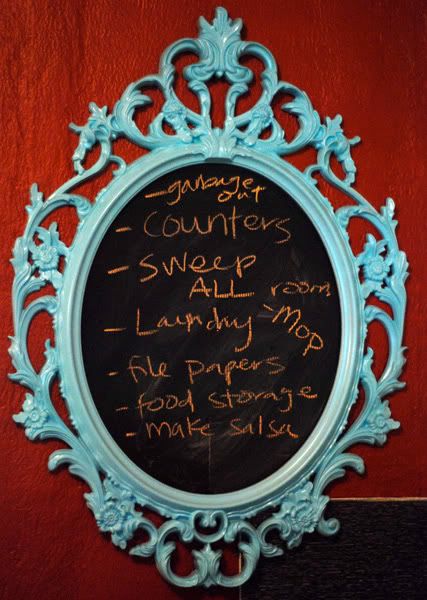 - garbage
out
- COUNTERS
- SWEEP
ALL room
- Laundry - MOP
- file papers
- food storage
- make salsa